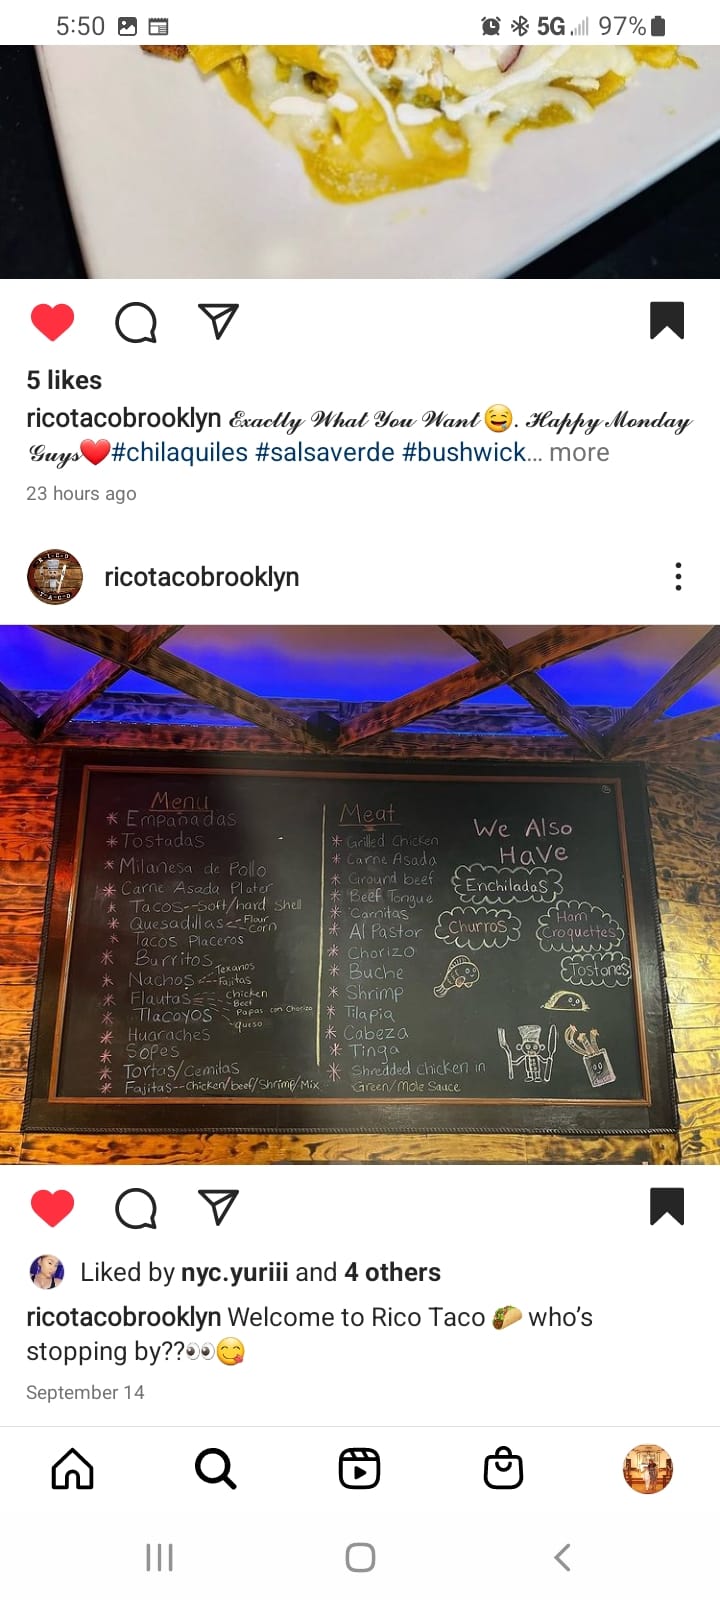 5:50 5G 97%
5 likes
ricotacobrooklyn 𝓔𝔁𝓪𝓬𝓽𝓵𝔂 𝓦𝓱𝓪𝓽 𝓨𝓸𝓾 𝓦𝓪𝓷𝓽🤤. 𝓗𝓪𝓹𝓹𝔂 𝓜𝓸𝓷𝓭𝓪𝔂
𝓖𝓾𝔂𝓼❤️#chilaquiles #salsaverde #bushwick... more
23 hours ago
RICO
TACO
ricotacobrooklyn
Menu
* Empanadas
* Tostadas
* Milanesa de Pollo
* Carne Asada Plater
* Tacos--Soft/hard Shell
* Quesadillas -- Flour
Corn
* Tacos Placeros
* Burritos
* Nachos -- Texanos
-- Fajitas
* Flautas -- Chicken
-- Beef
* Tlacoyos -- Papas con Chorizo
queso
* Huaraches
* Sopes
* Tortas/Cemitas
* Fajitas--Chicken/beef/Shrimp/Mix
Meat
* Grilled Chicken
* Carne Asada
* Ground beef
* Beef Tongue
* Carnitas
* Al Pastor
* Chorizo
* Buche
* Shrimp
* Tilapia
* Cabeza
* Tinga
* Shredded chicken in
Green/Mole Sauce
We Also
Have
Enchiladas
Churros
Ham
Croquettes
Tostones
Liked by nyc.yuriii and 4 others
ricotacobrooklyn Welcome to Rico Taco 🌮 who's
stopping by??👀😋
September 14